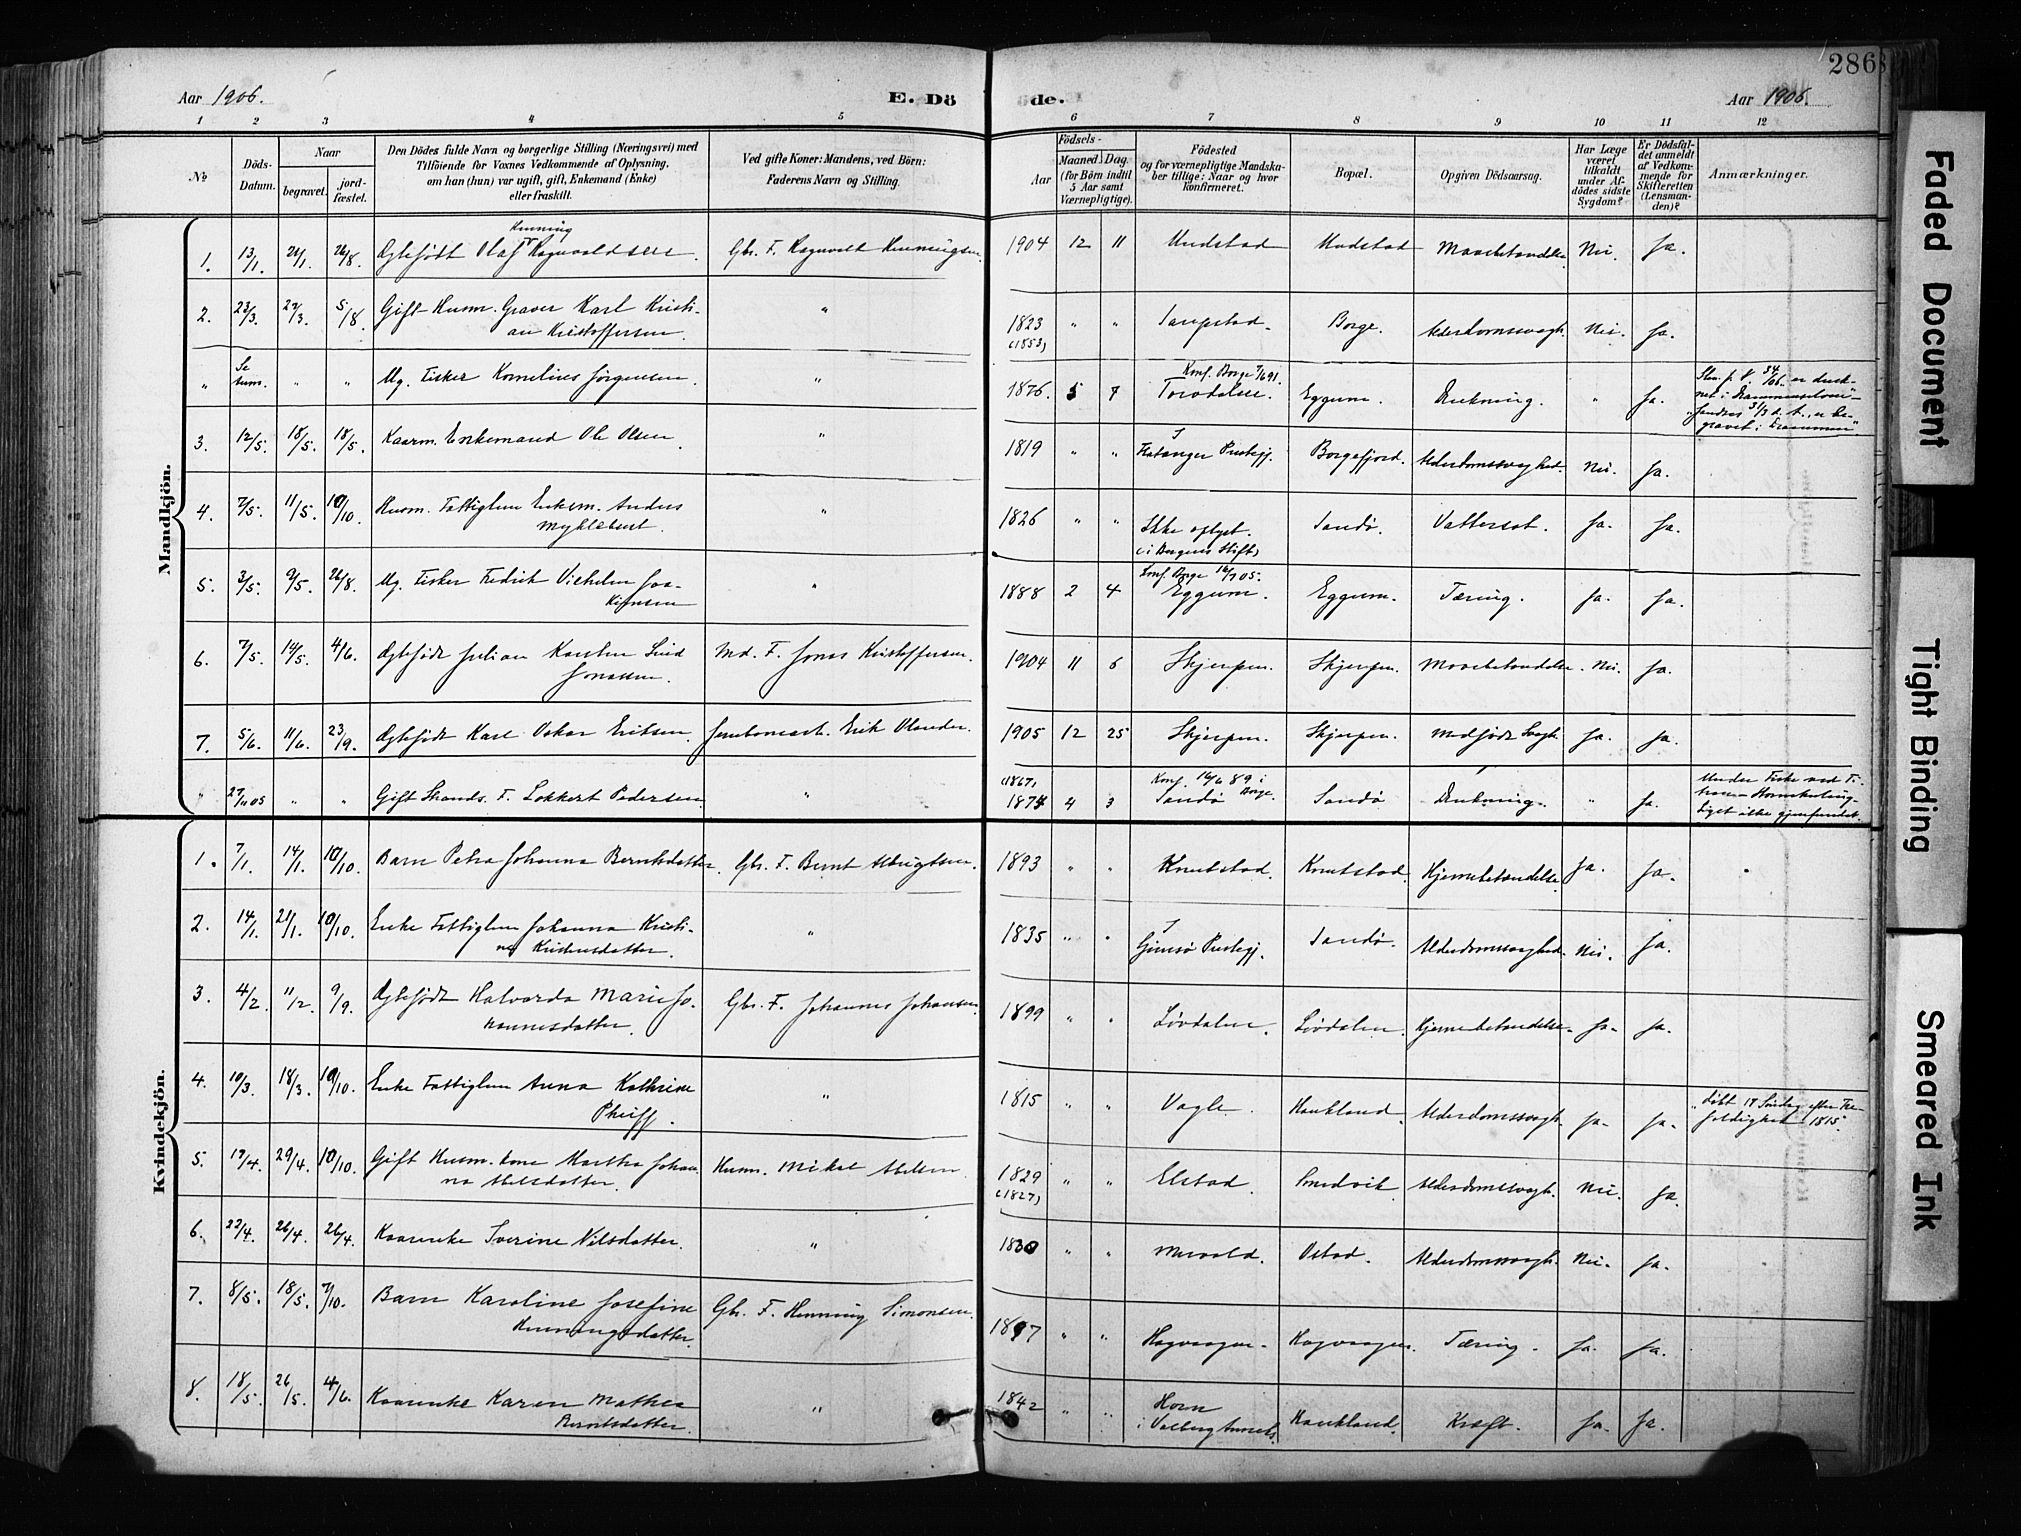 286
Aar 1906.
E. Dö
de.
Aar 1906.
1 2 3 4 5 6 7 8 9 10 11 12
No
Döds-
Datum.
Naar
begravet.
jord-
fæstet.
Den Dödes fulde Navn og borgerlige Stilling (Næringsvei) med
Tilföiende for Voxnes Vedkommende af Oplysning,
om han (hun) var ugift, gift, Enkemand (Enke)
eller fraskilt.
Ved gifte Koner: Mandens, ved Börn:
Faderens Navn og Stilling.
Födsels-
Aar
Maaned. Dag.
(for Börn indtil
5 Aar samt
Værnepligtige).
Födested
og for værnepligtige Mandska-
ber tillige: Naar og hvor
konfirmeret.
Bopæl.
Opgiven Dödsaarsag.
Har Læge
været
tilkaldt
under Af-
dödes sidste
Sygdom?
Er Dödsfal-
det anmeldt
af Vedkom-
mende for
Skifteretten
(Lensman-
den)?
Anmærkninger.
Mandkjön.
Henning
1. 13/1. 21/1. 26/8. Ægtefødt Olaf Ragnvaldsen. Gbr. F. Ragnvald Henningsen. 1904 12 11 Undstad Undstad Mavebetændelse Nei. Ja.
2. 23/3. 27/3. 5/8. Gift Husm. Graver Karl Kristi-
an Kristoffersen. " 1823 " " Tangstad. Borge. Alderdomssvagh. Nei. Ja.
(1853)
" Se
hum. " " Ug. Fisker Kornelius Jørgensen. " 1876. 5 7 Torvdalen. Eggum. Drukning. " Ja.
3. 12/5. 18/5. 18/5. Kaarm. Enkemand Ole Olsen. " 1819 " " I
Hatanger Prestegj. Borgefjord. Alderdomssvaghed. Nei. Ja.
4. 7/5. 11/5. 10/10. Husm. Fattiglem Enkem. Anders
Myklebust. " 1826 " " Ikke oplyst.
(i Bergens Stift) Sandø. Vattersot. Ja. Ja.
5. 3/5. 9/5. 26/8. Ug. Fisker Fredrik Vilhelm Joa-
kimsen " 1888 2 4 Eggum. Eggum. Tæring. Ja. Ja.
6. 7/5. 14/5. 4/6. Ægtefødt Julian Karsten Lind
Jonassen. Md. F. Jonas Kristoffersen. 1904 11 6 Skjerpen. Skjerpen. Mavebetændelse. Nei. Ja.
7. 5/6. 11/6. 23/9. Ægtefødt Karl Oskar Eriksen. Jernbanearb. Erik Olander. 1905 12 25 Skjerpen. Skjerpen. Medfødt Svagh. Ja. Ja.
" 27/11 05 " " Gift Strands. F. Lokkert Pedersen " (1867) 1874 4 3 Konf. 16/6 89 i
Borge.
Sandø Sandø Drukning. " Ja. Under Fiske ved Fi-
Liget ikke gjenfundet.
Kvindekjön.
1. 7/1. 14/1. 10/10. Barn Petra Johanna Berntsdatter. Gbr. F. Bernt Albrigtsen. 1893 " " Knutstad. Knutstad. Hjernebetændelse. Ja. Ja.
2. 14/1. 21/1. 10/10. Enke Fattiglem Johanna Kristi-
ne Kristensdatter. " 1835 " " I
Gimsø Prestegj. Sandø. Alderdomssvaghed. Nei. Ja.
3. 4/2. 11/2. 9/9. Ægtefødt Halvarda Marie Jo-
hannesdatter. Gbr. F. Johannes Johansen. 1899 " " Løvdalen. Løvdalen. Hjernebetændelse. Ja. Ja.
4. 10/3. 18/3. 10/10. Enke Fattiglem Anna Kathrine
Pheiff. " 1815 " " Vagle. Haukland. Alderdomssvagh. Ja. Ja. døbt 17 Søndag efter Tre-
foldighet 1815.
5. 17/4. 29/4. 10/10. Gift Husm. kone Martha Johan-
na Abelsdatter. Husm. Mikal Abelsen. 1829 " " Elstad. Smedvik. Alderdomssvagh. Nei. Ja.
(1827)
6. 22/4. 26/4. 26/4. Kaarenke Sverine Nilsdatter. " 1830 " " Mervold. Ostad. Alderdomssvagh. Nei. Ja.
7. 8/5. 18/5. 7/10. Barn Karoline Josefine
Henningsdatter. Gbr. F. Henning Simonsen. 1897 " " Hagvaagen. Hagvaagen. Tæring. Ja. Ja.
8. 18/5. 26/5. 4/6. Kaarenke Karen Mathea
Berntsdatter. " 1842 " " Horn
i Valberg Annecks. Haukland. Kræft. Ja. Ja.
Faded Document
Tight Binding
Smeared Ink